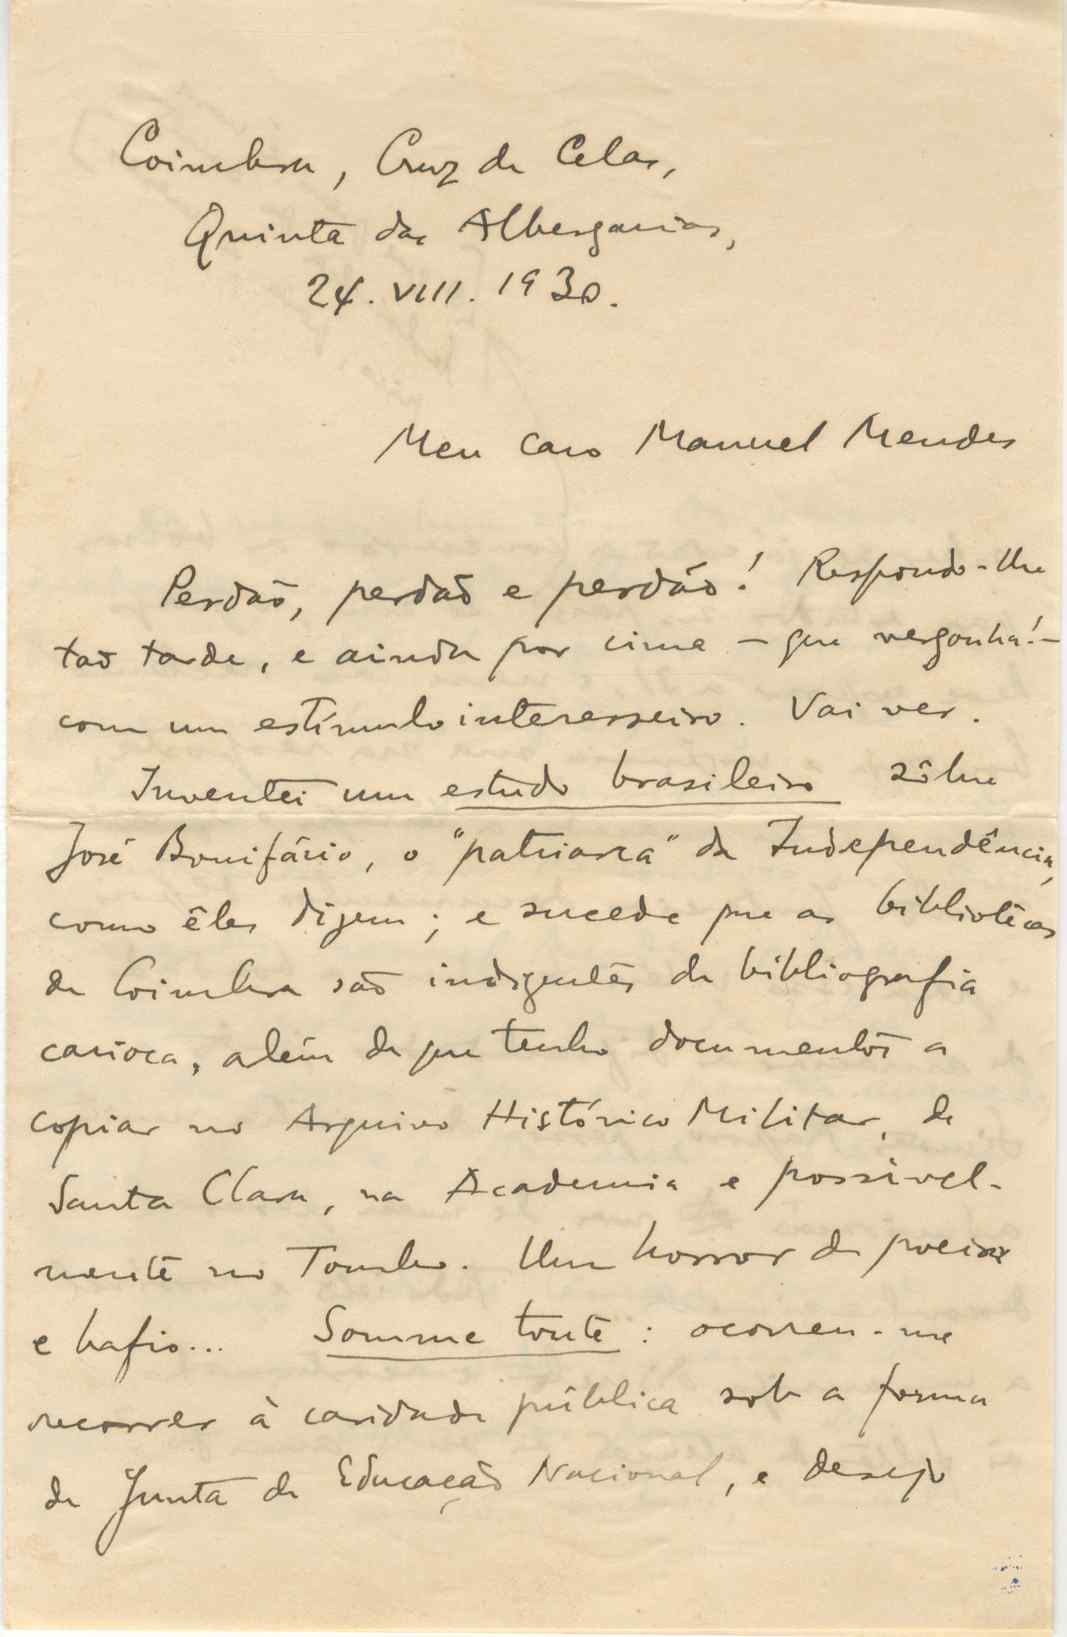 Coimbra, Cruz de Celas,
Quinta das Albergarias,
24. VIII. 1930.
Meu caro Manuel Mendes
Perdão, perdão e perdão! Respondo-lhe
tão tarde, e ainda por cima — que vergonha! —
com um estímulo interesseiro. Vai ver.
Inventei um estudo brasileiro sôbre
José Bonifácio, o "patriarca" da Independência,
como êles dizem; e sucede que as bibliotécas
de Coimbra são indigentes de bibliografia
carioca, além de que tenho documentos a
copiar no Arquivo Histórico Militar, de
Santa Clara, na Academia e possivel-
mente no Tombo. Um horror de poeira
e bafio... Somme toute: ocorreu-me
recorrer à caridade pública sob a forma
da Junta de Educação Nacional, e desejo